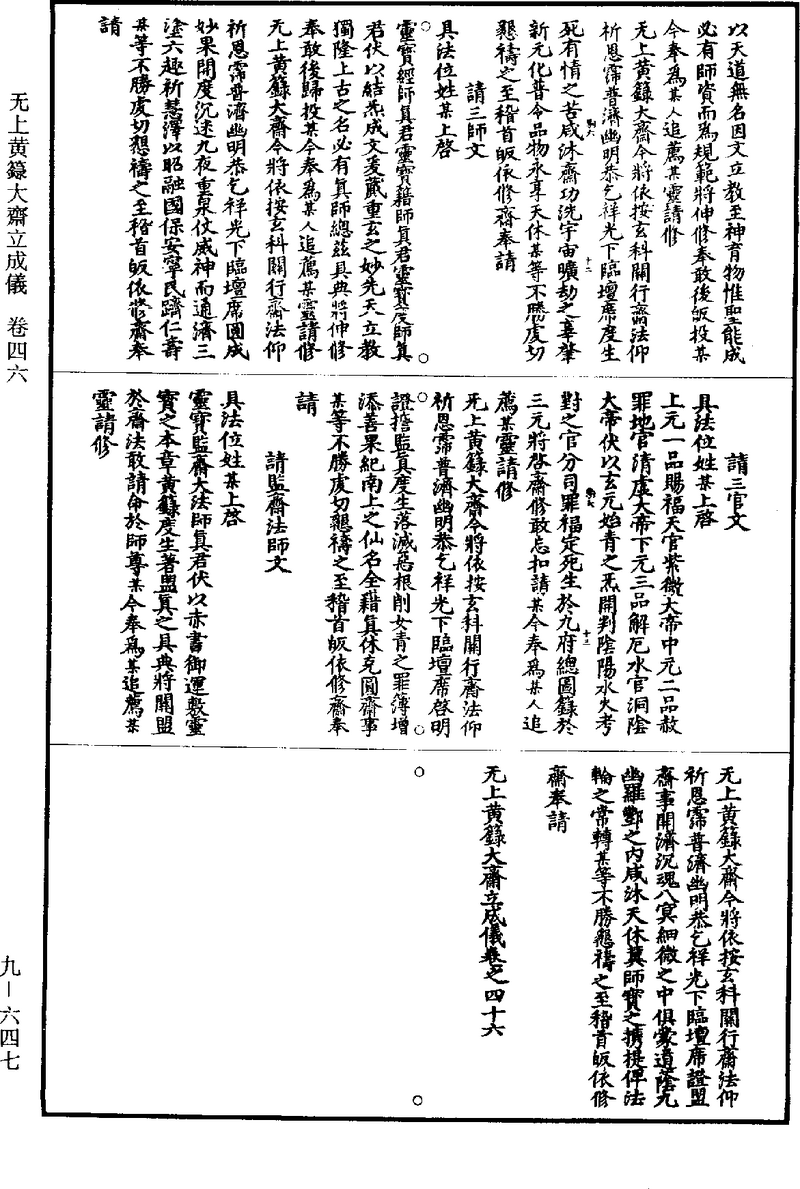 以天道無名因文立教至神育物惟聖能成
必有師資而爲規範將伸修奉敢後皈投某
今奉爲某人追薦某靈請修
无上黄籙大齋今將依按玄科關行齋法仰
祈恩霈普濟幽明恭乞祥光下臨壇席度生
死有情之苦咸沐齋功洗宇宙曠劫之辜肇
新元化普令品物永享天休某等不勝虔切
懇禱之至稽首皈依修齋奉請
請三師文
具法位姓某上啓
靈寶經師真君靈寶籍師真君靈寶度師真
君伏以結炁成文爰蕆重玄之妙先天立教
獨隆上古之名必有真師總茲具典將伸修
奉敢後歸投某今奉爲某人追薦某靈請修
无上黄籙大齋今將依按玄科關行齋法仰
祈恩霈普濟幽明恭乞祥光下臨壇席圓成
妙果開度沉迷九夜重泉仗威神而通濟三
塗六趣祈慧澤以昭融國保安寧民躋仁壽
某等不勝虔切懇禱之至稽首皈依修齋奉
請
請三官文
具法位姓某上啓
上元一品賜福天官紫微大帝中元二品赦
罪地官清虛大帝下元三品解厄水官洞陰
大帝伏以玄元始青之炁開判陰陽水火考
對之官分司罪福定死生於九府總圖錄於
三元將啓齋修敢忘扣請某今奉爲某人追
薦某靈請修
无上黄籙大齋今將依按玄科關行齋法仰
祈恩霈普濟幽明恭乞祥光下臨壇席啓明
證擔監真度生落滅惡根削女青之罪簿增
添善果紀南上之仙名全藉真休克圓齋事
某等不勝虔切懇禱之至稽首皈依修齋奉
請
請監齋法師文
具法位姓某上啓
靈寶監齋大法師真君伏以赤書御運敷靈
寶之本章黄籙度生著盟真之具典將關盟
於齋法敢請命於師尊某今奉爲某追薦某
靈請修
无上黄籙大齋今將依按玄科關行齋法仰
祈恩霈普濟幽明恭乞祥光下臨壇席證盟
齋事開濟沉魂八冥細微之中俱蒙道蔭九
幽羅酆之内咸沐天休冀師寶之携提俾法
輪之常轉某等不勝懇禱之至稽首皈依修
齋奉請
无上黄籙大齋立成儀卷之四十六
无上黄籙大齋立成儀 卷四六
九—六四七